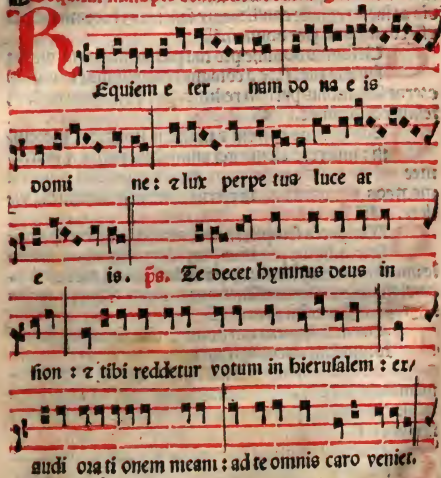 Requiem e ter nam do na e is
domi ne: ⁊ lux perpe tua luce at
e is. p̄s. Te decet hymnus deus in
sion : ⁊ tibi reddetur votum in hierusalem : ex/
audi ora ti onem meam : ad te omnis caro veniet.